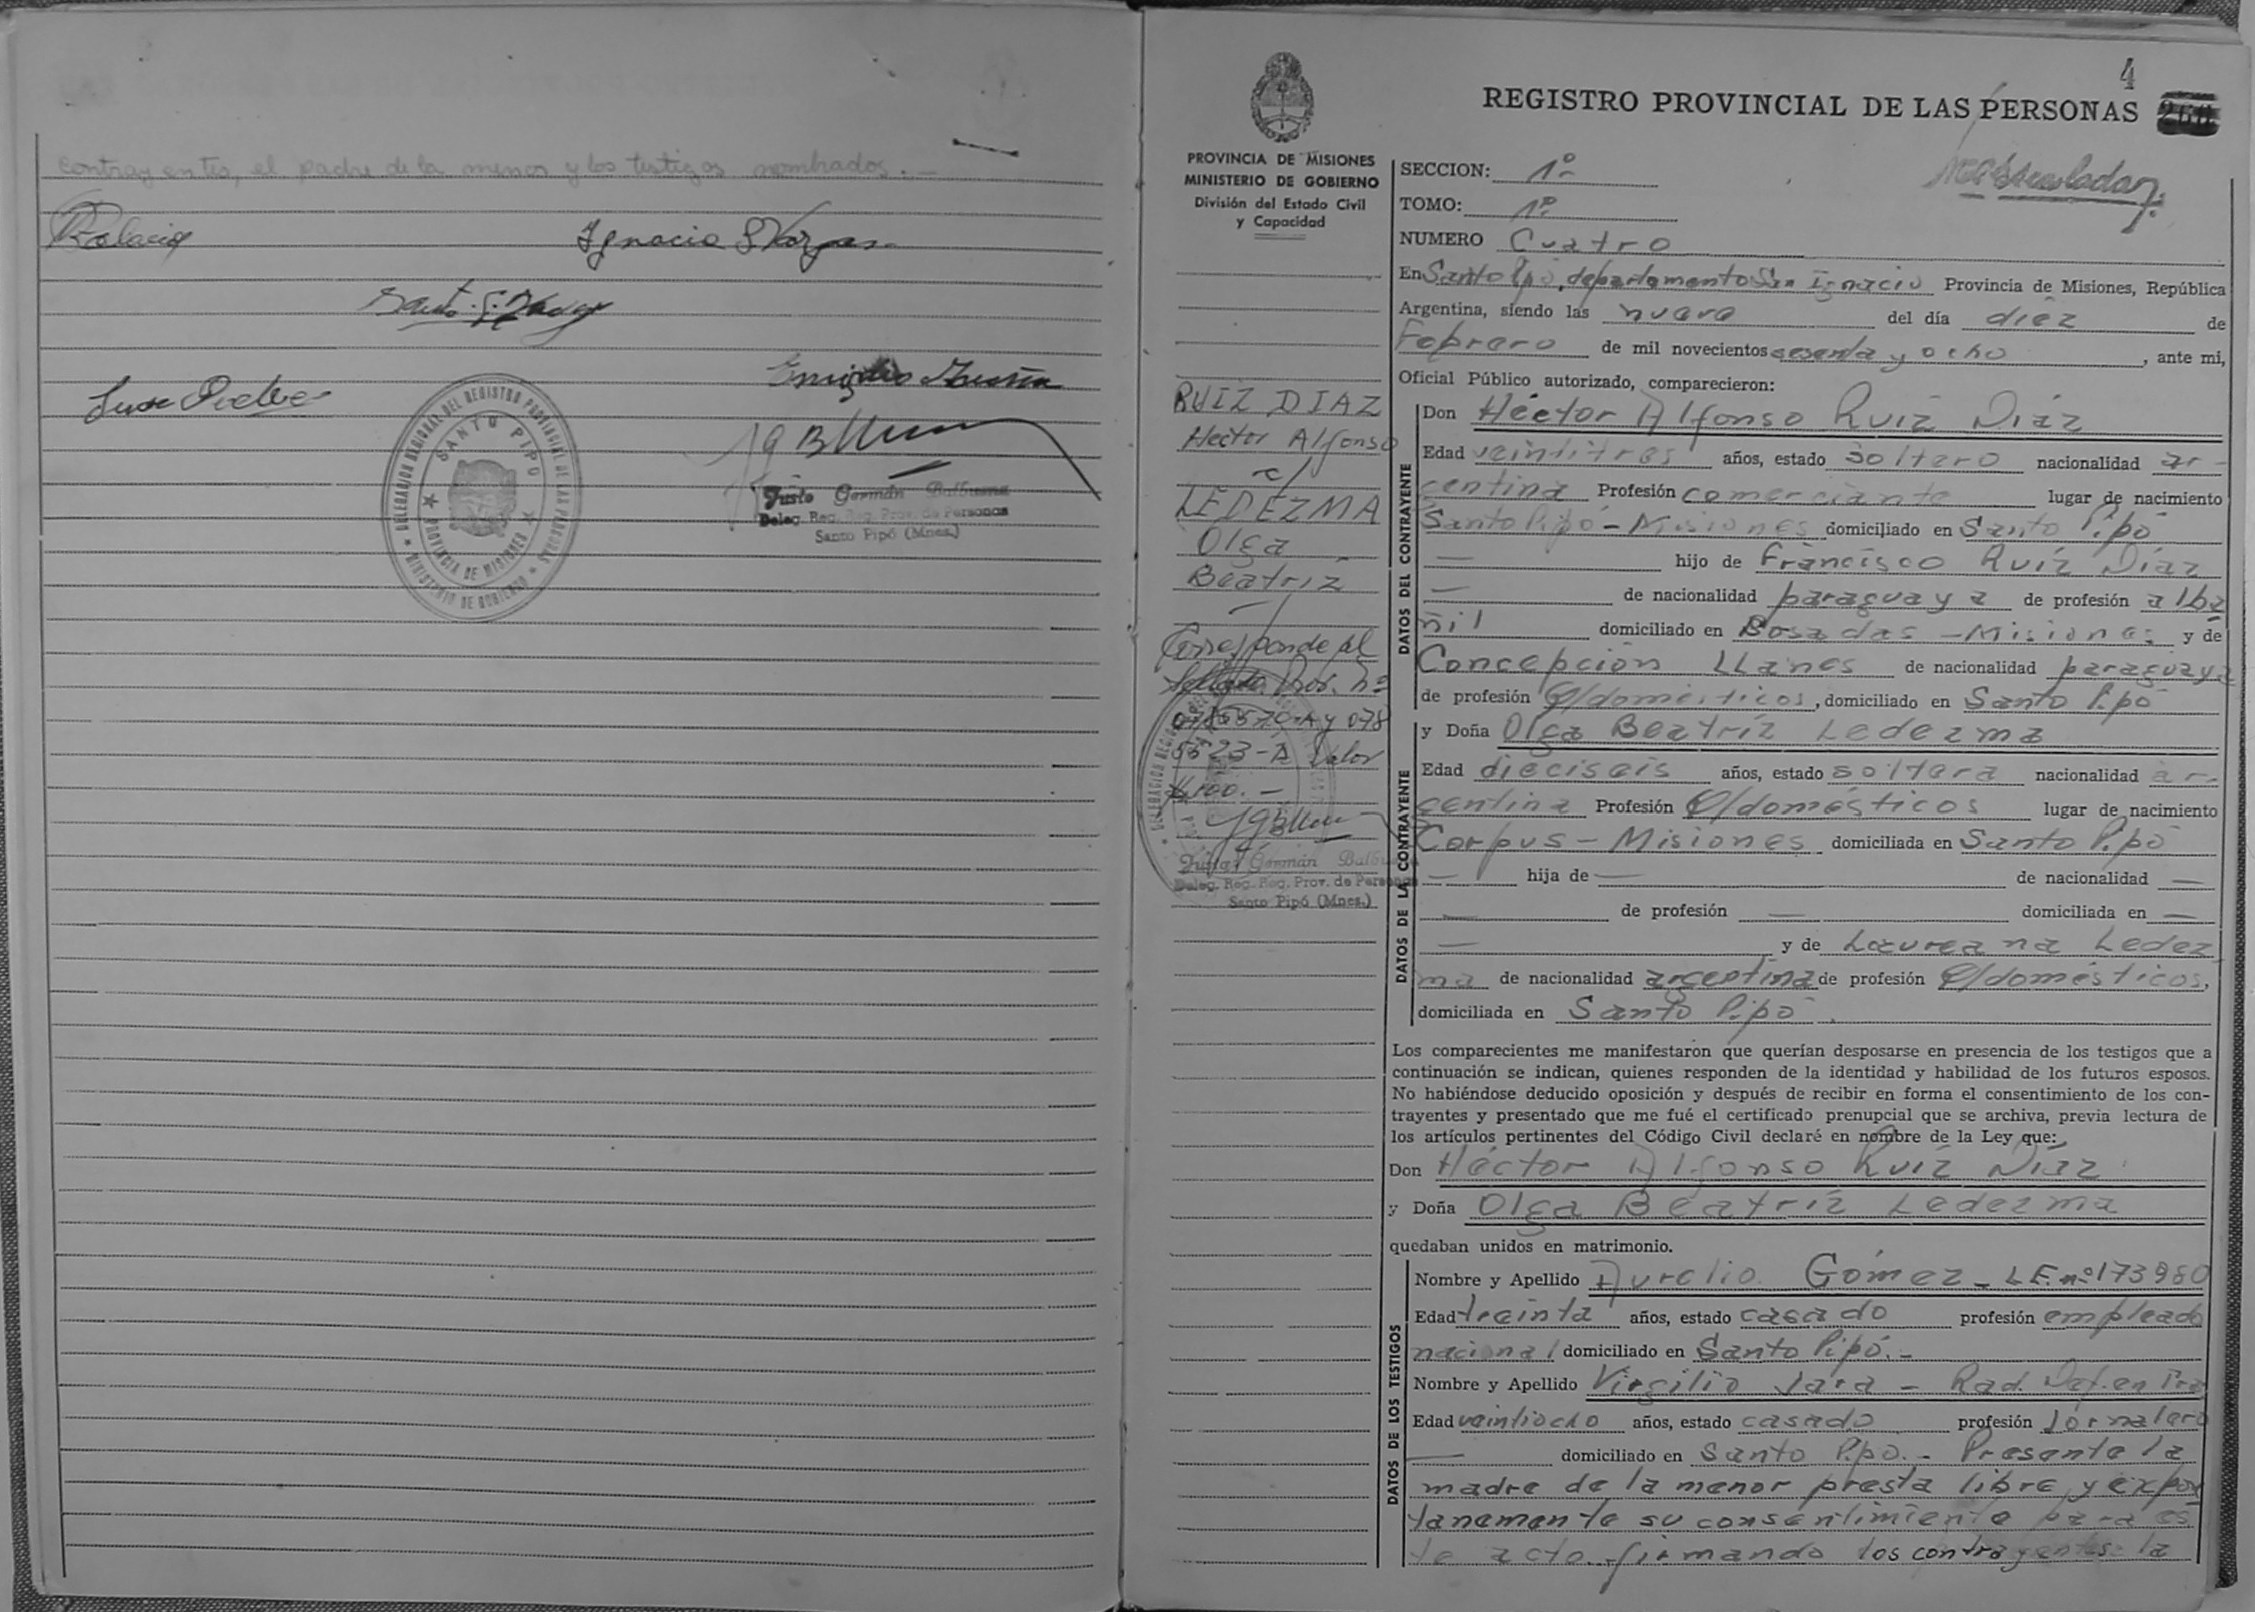 contrayentes, el padre de la menor y los testigos nombrados.—
Ignacio S Vargas
DELEGACION REGIONAL DEL REGISTRO PROVINCIAL DE LAS PERSONAS
SANTO PIPO
PROVINCIA DE MISIONES
MINISTERIO DE GOBIERNO
Justo Germán Balbuena
Deleg. Reg. Reg. Prov. de Personas
Santo Pipó (Mnes.)
4
REGISTRO PROVINCIAL DE LAS PERSONAS
PROVINCIA DE MISIONES
MINISTERIO DE GOBIERNO
División del Estado Civil
y Capacidad
RUIZ DIAZ
Hector Alfonso
c/
LEDEZMA
Olga
Beatriz
Corresponde al
Sellado Prov. nº
y 078
5523-A Valor
100.—
Justo Germán Balbuena
Deleg. Reg. Reg. Prov. de Personas
Santo Pipó (Mnes.)
SECCION: 1º-
TOMO: 1º.
NUMERO Cuatro
En Santo Pipó, departamento San Ignacio Provincia de Misiones, República
Argentina, siendo las nueve del día diez de
Febrero de mil novecientos sesenta y ocho, ante mi,
Oficial Público autorizado, comparecieron:
DATOS DEL CONTRAYENTE
Don Héctor Alfonso Ruíz Díaz
Edad veintitres años, estado soltero nacionalidad ar-
gentina Profesión comerciante lugar de nacimiento
Santo Pipó - Misiones domiciliado en Santo Pipó
— hijo de Francisco Ruíz Díaz
— de nacionalidad paraguaya de profesión alba
ñil domiciliado en Posadas - Misiones y de
Concepción LLanes de nacionalidad paraguaya
de profesión Q/domésticos, domiciliado en Santo Pipó
DATOS DE LA CONTRAYENTE
y Doña Olga Beatríz Ledezma
Edad dieciseis años, estado soltera nacionalidad ar-
gentina Profesión Q/domésticos lugar de nacimiento
Corpus - Misiones domiciliada en Santo Pipó
— hija de — de nacionalidad —
— de profesión — domiciliada en —
— y de Laureana Ledez
ma de nacionalidad argentina de profesión Q/domésticos,
domiciliada en Santo Pipó.
Los comparecientes me manifestaron que querían desposarse en presencia de los testigos que a
continuación se indican, quienes responden de la identidad y habilidad de los futuros esposos.
No habiéndose deducido oposición y después de recibir en forma el consentimiento de los con-
trayentes y presentado que me fué el certificado prenupcial que se archiva, previa lectura de
los artículos pertinentes del Código Civil declaré en nombre de la Ley que:
Don Héctor Alfonso Ruíz Díaz
y Doña Olga Beatríz Ledezma
quedaban unidos en matrimonio.
DATOS DE LOS TESTIGOS
Nombre y Apellido Aurelio Gómez - L.E. nº 173980
Edad treinta años, estado casado profesión empleado
nacional domiciliado en Santo Pipó.-
Nombre y Apellido Virgilio Jara - Rad. Def. en Tra
Edad veintiocho años, estado casado profesión Jornalero
— domiciliado en Santo Pipó.- Presente la
madre de la menor presta libre y expon
taneamente su consentimiento para es
te acto. firmando los contrayentes la